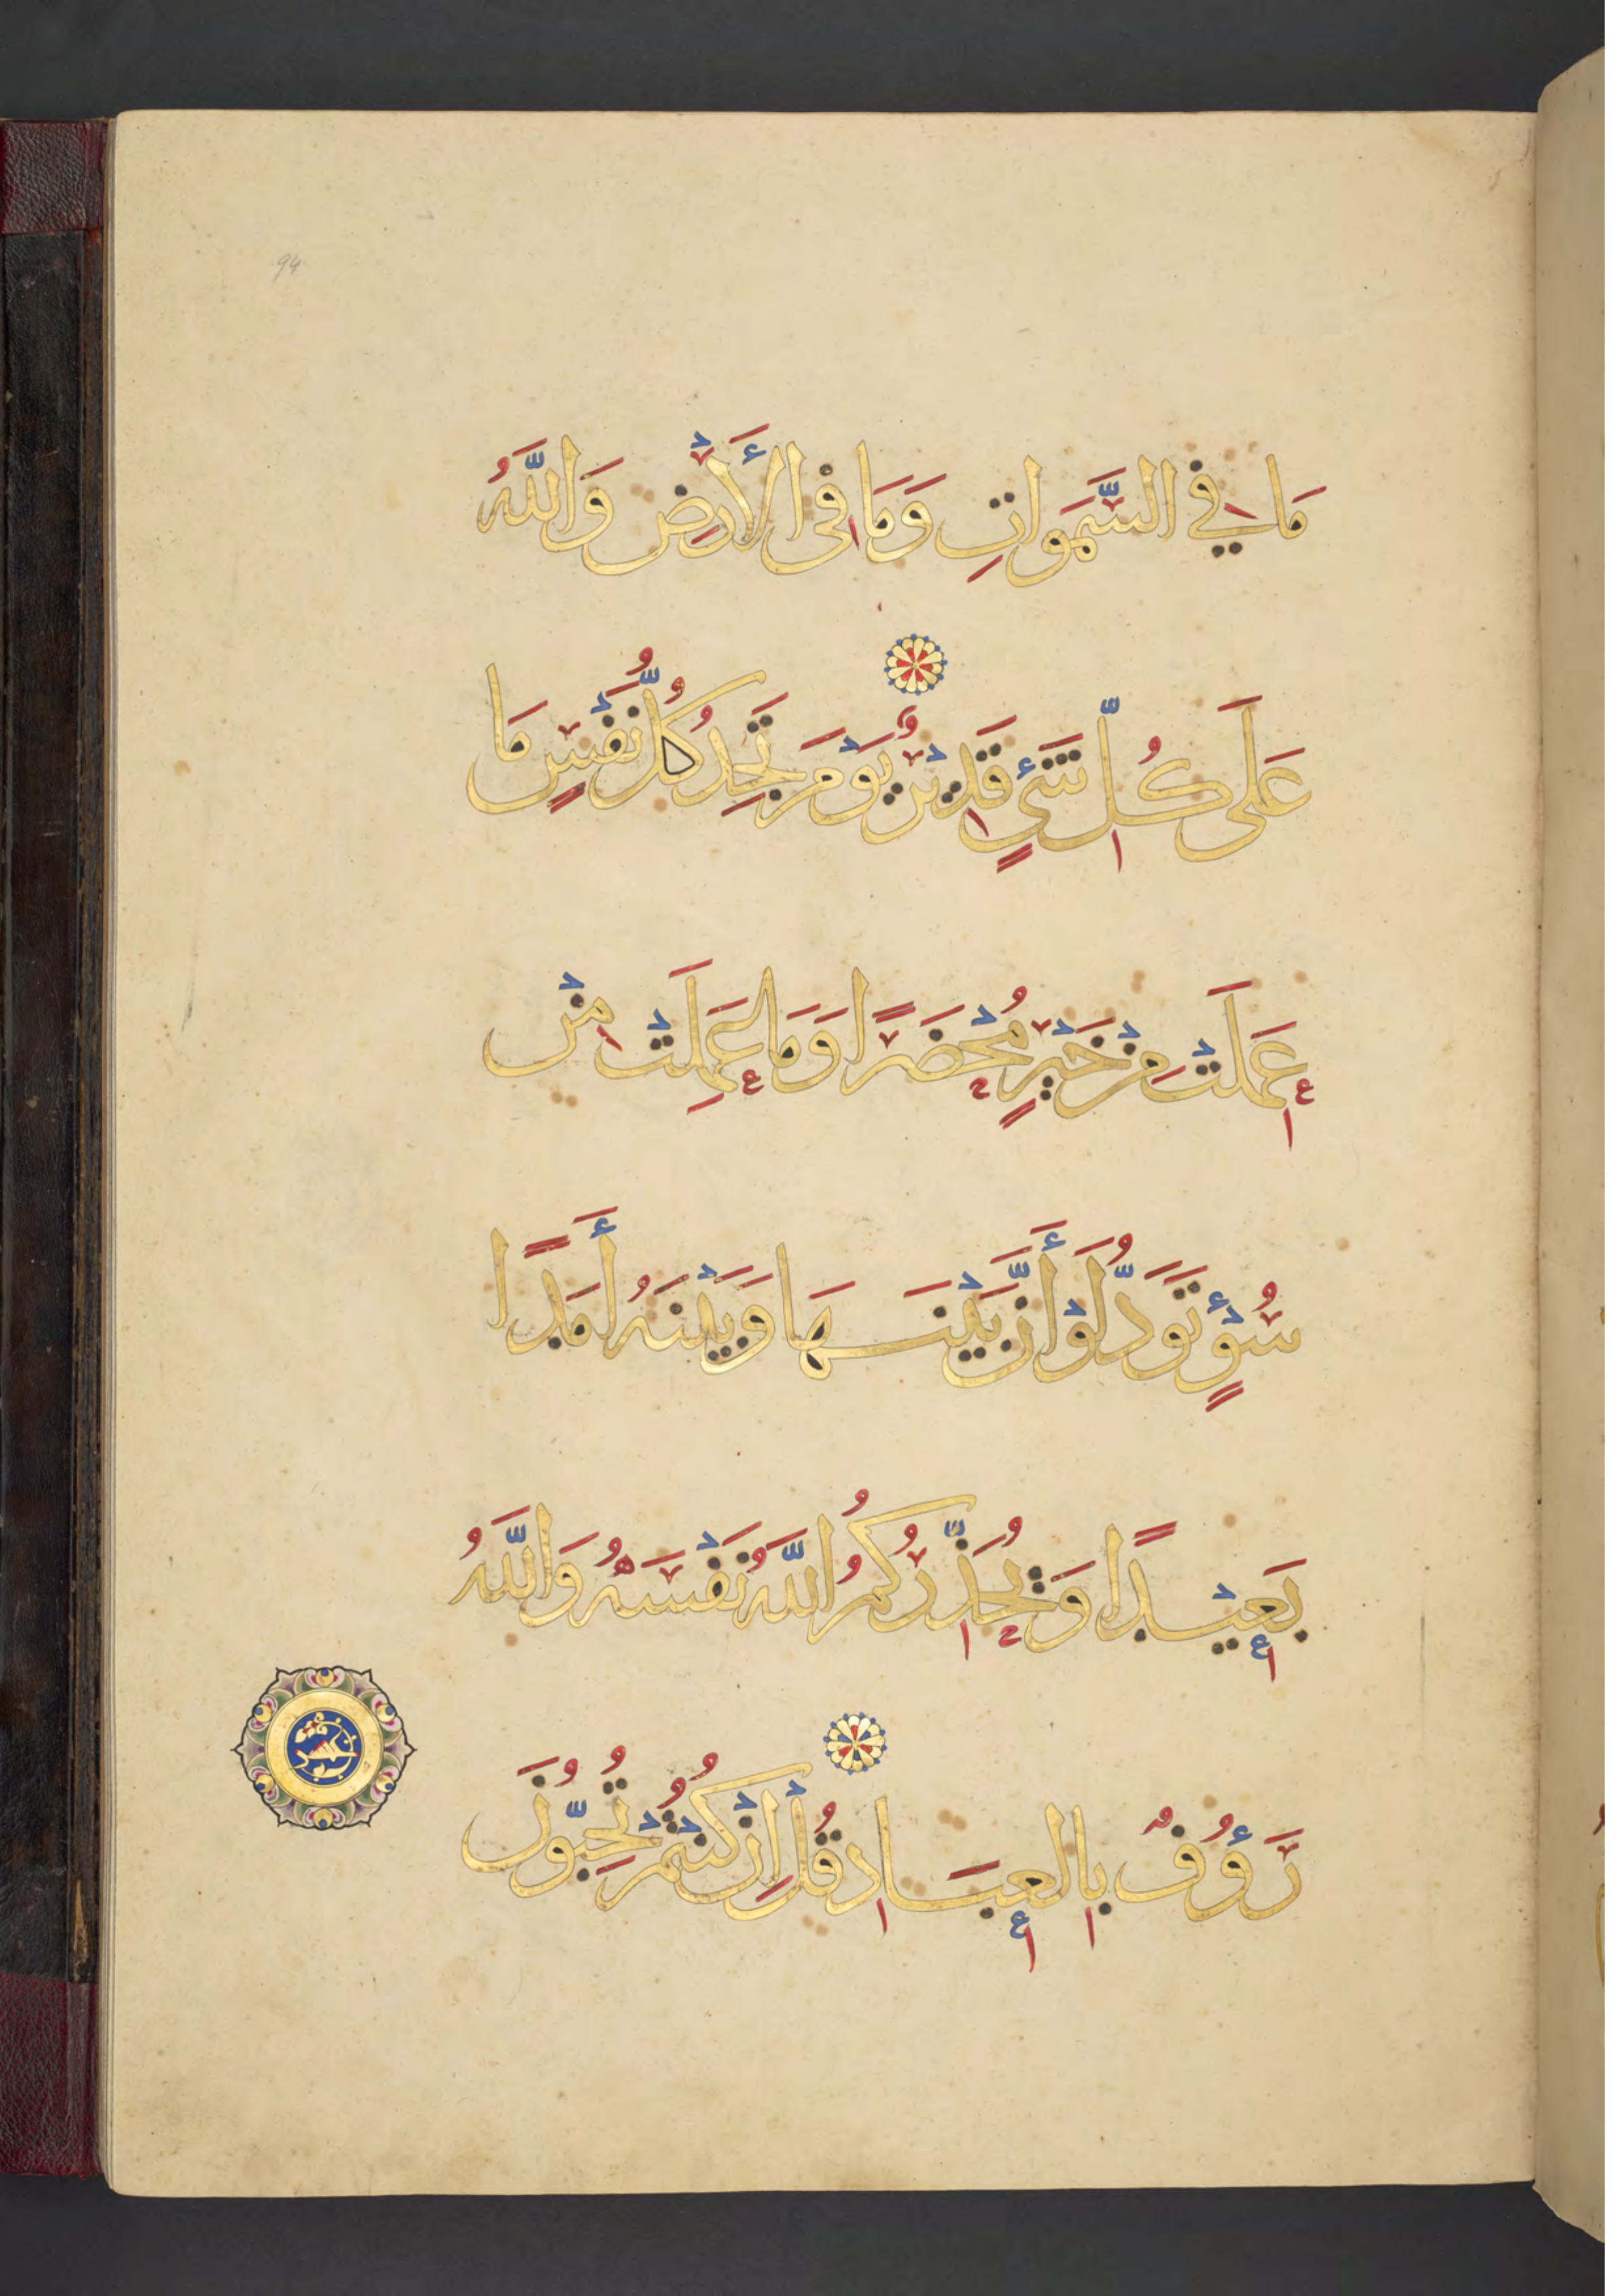 94
مَا فِي السَّمَوَاتِ وَمَا فِى الْأَرْضِ وَاللَّهُ
عَلَى كُلِّ شَىْءٍ قَدِيْرٌ يَوْمَ تَجِدُ كُلُّ نَفْسٍ مَا
عَمِلَتْ مِنْ خَيْرٍ مُحْضَرًا وَمَا عَمِلَتْ مِنْ
سُوْءٍ تَوَدُّ لَوْ أَنَّ بَيْنَهَا وَبَيْنَهُ أَمَدًا
بَعِيْدًا وَيُحَذِّرُكُمُ اللَّهُ نَفْسَهُ وَاللَّهُ
رَؤُوفٌ بِالْعِبَادِ قُلْ إِنْ كُنْتُمْ تُحِبُّونَ